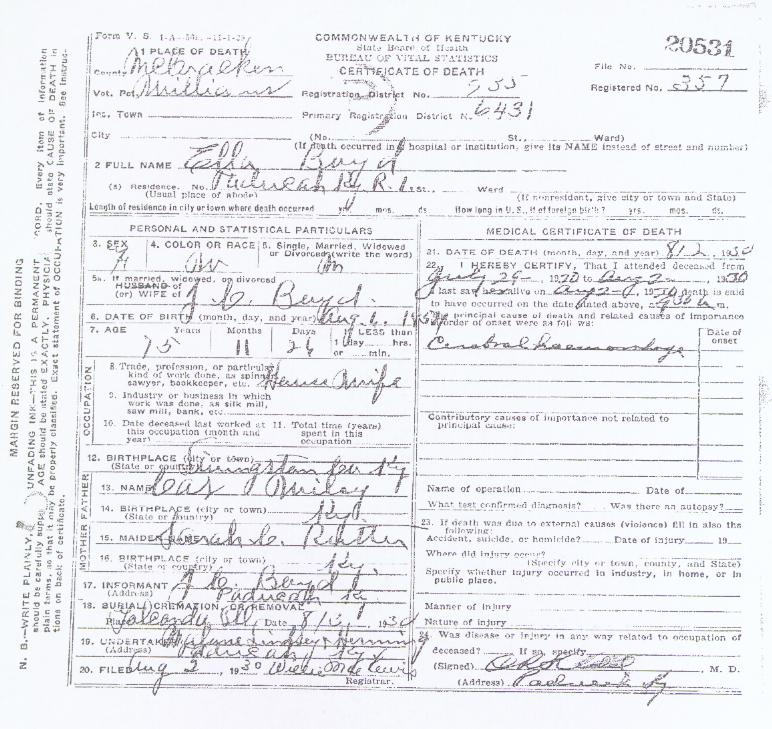 Form V. S. 1-A
COMMONWEALTH OF KENTUCKY
State Board of Health
BUREAU OF VITAL STATISTICS
CERTIFICATE OF DEATH
20531
File No.
Registered No. 357
1 PLACE OF DEATH
County McCracken
Vot. Pct.
Registration District No.
Inc. Town
Primary Registration District No. 6431
City
(No. St., Ward)
(If death occurred in a hospital or institution, give its NAME instead of street and number)
2 FULL NAME Ella Boyd
(a) Residence. No. Paducah Ky R. 1 St., Ward
(Usual place of abode) (If nonresident, give city or town and State)
Length of residence in city or town where death occurred yrs. mos. ds. How long in U. S., if of foreign birth? yrs. mos. ds.
PERSONAL AND STATISTICAL PARTICULARS
3. SEX F
4. COLOR OR RACE W
5. Single, Married, Widowed
or Divorced (write the word) M
5a. If married, widowed, or divorced
HUSBAND of
(or) WIFE of J. C. Boyd
6. DATE OF BIRTH (month, day, and year) Aug. 6
7. AGE Years Months Days If LESS than
75 11 26 1 day, hrs.
or min.
OCCUPATION
8. Trade, profession, or particular
kind of work done, as spinner,
sawyer, bookkeeper, etc. House Wife
9. Industry or business in which
work was done, as silk mill,
saw mill, bank, etc.
10. Date deceased last worked at
this occupation (month and
year)
11. Total time (years)
spent in this
occupation
12. BIRTHPLACE (city or town)
(State or country) Livingston Co. Ky
FATHER
13. NAME
14. BIRTHPLACE (city or town)
(State or country) Ky.
MOTHER
15. MAIDEN NAME Sarah C.
16. BIRTHPLACE (city or town)
(State or country) Ky.
17. INFORMANT J. C. Boyd
(Address) Paducah Ky
18. BURIAL, CREMATION, OR REMOVAL
Place Date 1930
19. UNDERTAKER
(Address) Paducah Ky
20. FILED Aug 2, 1930 Willie Mae Lewis
Registrar.
MEDICAL CERTIFICATE OF DEATH
21. DATE OF DEATH (month, day, and year) 8/2, 1930
22. I HEREBY CERTIFY, That I attended deceased from
July 29, 1930 to Aug 2, 1930
I last saw her alive on Aug 2, 1930 death is said
to have occurred on the date stated above, at m.
The principal cause of death and related causes of importance
in order of onset were as follows:
Date of
onset
Cerebral haemorrhage
Contributory causes of importance not related to
principal cause:
Name of operation Date of
What test confirmed diagnosis? Was there an autopsy?
23. If death was due to external causes (violence) fill in also the
following:
Accident, suicide, or homicide? Date of injury 19
Where did injury occur?
(Specify city or town, county, and State)
Specify whether injury occurred in industry, in home, or in
public place.
Manner of injury
Nature of injury
24. Was disease or injury in any way related to occupation of
deceased? If so, specify
(Signed) M. D.
(Address) Paducah Ky
MARGIN RESERVED FOR BINDING
N. B.—WRITE PLAINLY, UNFADING INK—THIS IS A PERMANENT RECORD. Every item of information
should be carefully supplied. AGE should be stated EXACTLY. PHYSICIANS should state CAUSE OF DEATH in
plain terms, so that it may be properly classified. Exact statement of OCCUPATION is very important. See instruc-
tions on back of certificate.